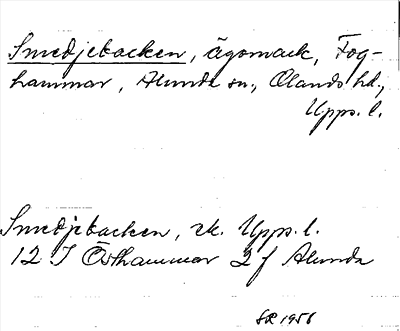 Smedjebacken, ägomark, Fog-
hammar, Alunda sn, Olands hd,
Upps. l.
Smedjebacken, ek. Upps. l.
12 I Östhammar 2 f Alunda
SR 1956